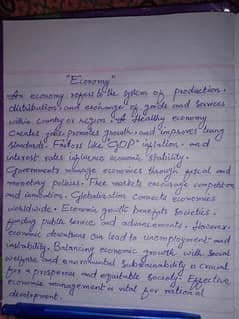 "Economy"
An economy refers to the system of production,
distribution, and exchange of goods and services
within country or region. A Healthy economy
creates jobs, promotes growth, and improves living
standards. Factors like "GDP" inflation, and
interest rates influence economic stability.
Governments manage economies through fiscal and
monetary policies. Free markets encourage competition
and innovation. Globalization connects economies
worldwide. Economic growth benefits societies,
funding public service and advancements. However,
economic downturns can lead to unemployment and
instability. Balancing economic growth, with social
welfare and environmental sustainability is crucial
for a prosperous and equitable society. Effective
economic management is vital for national
development.